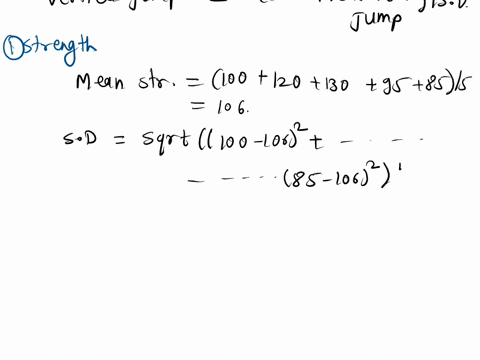 jump
① strength
Mean str. = (100 + 120 + 130 + 95 + 85)/5
= 106.
S.D = sqrt((100 - 106)² + - - - - -
- - - - - - (85 - 106)²)